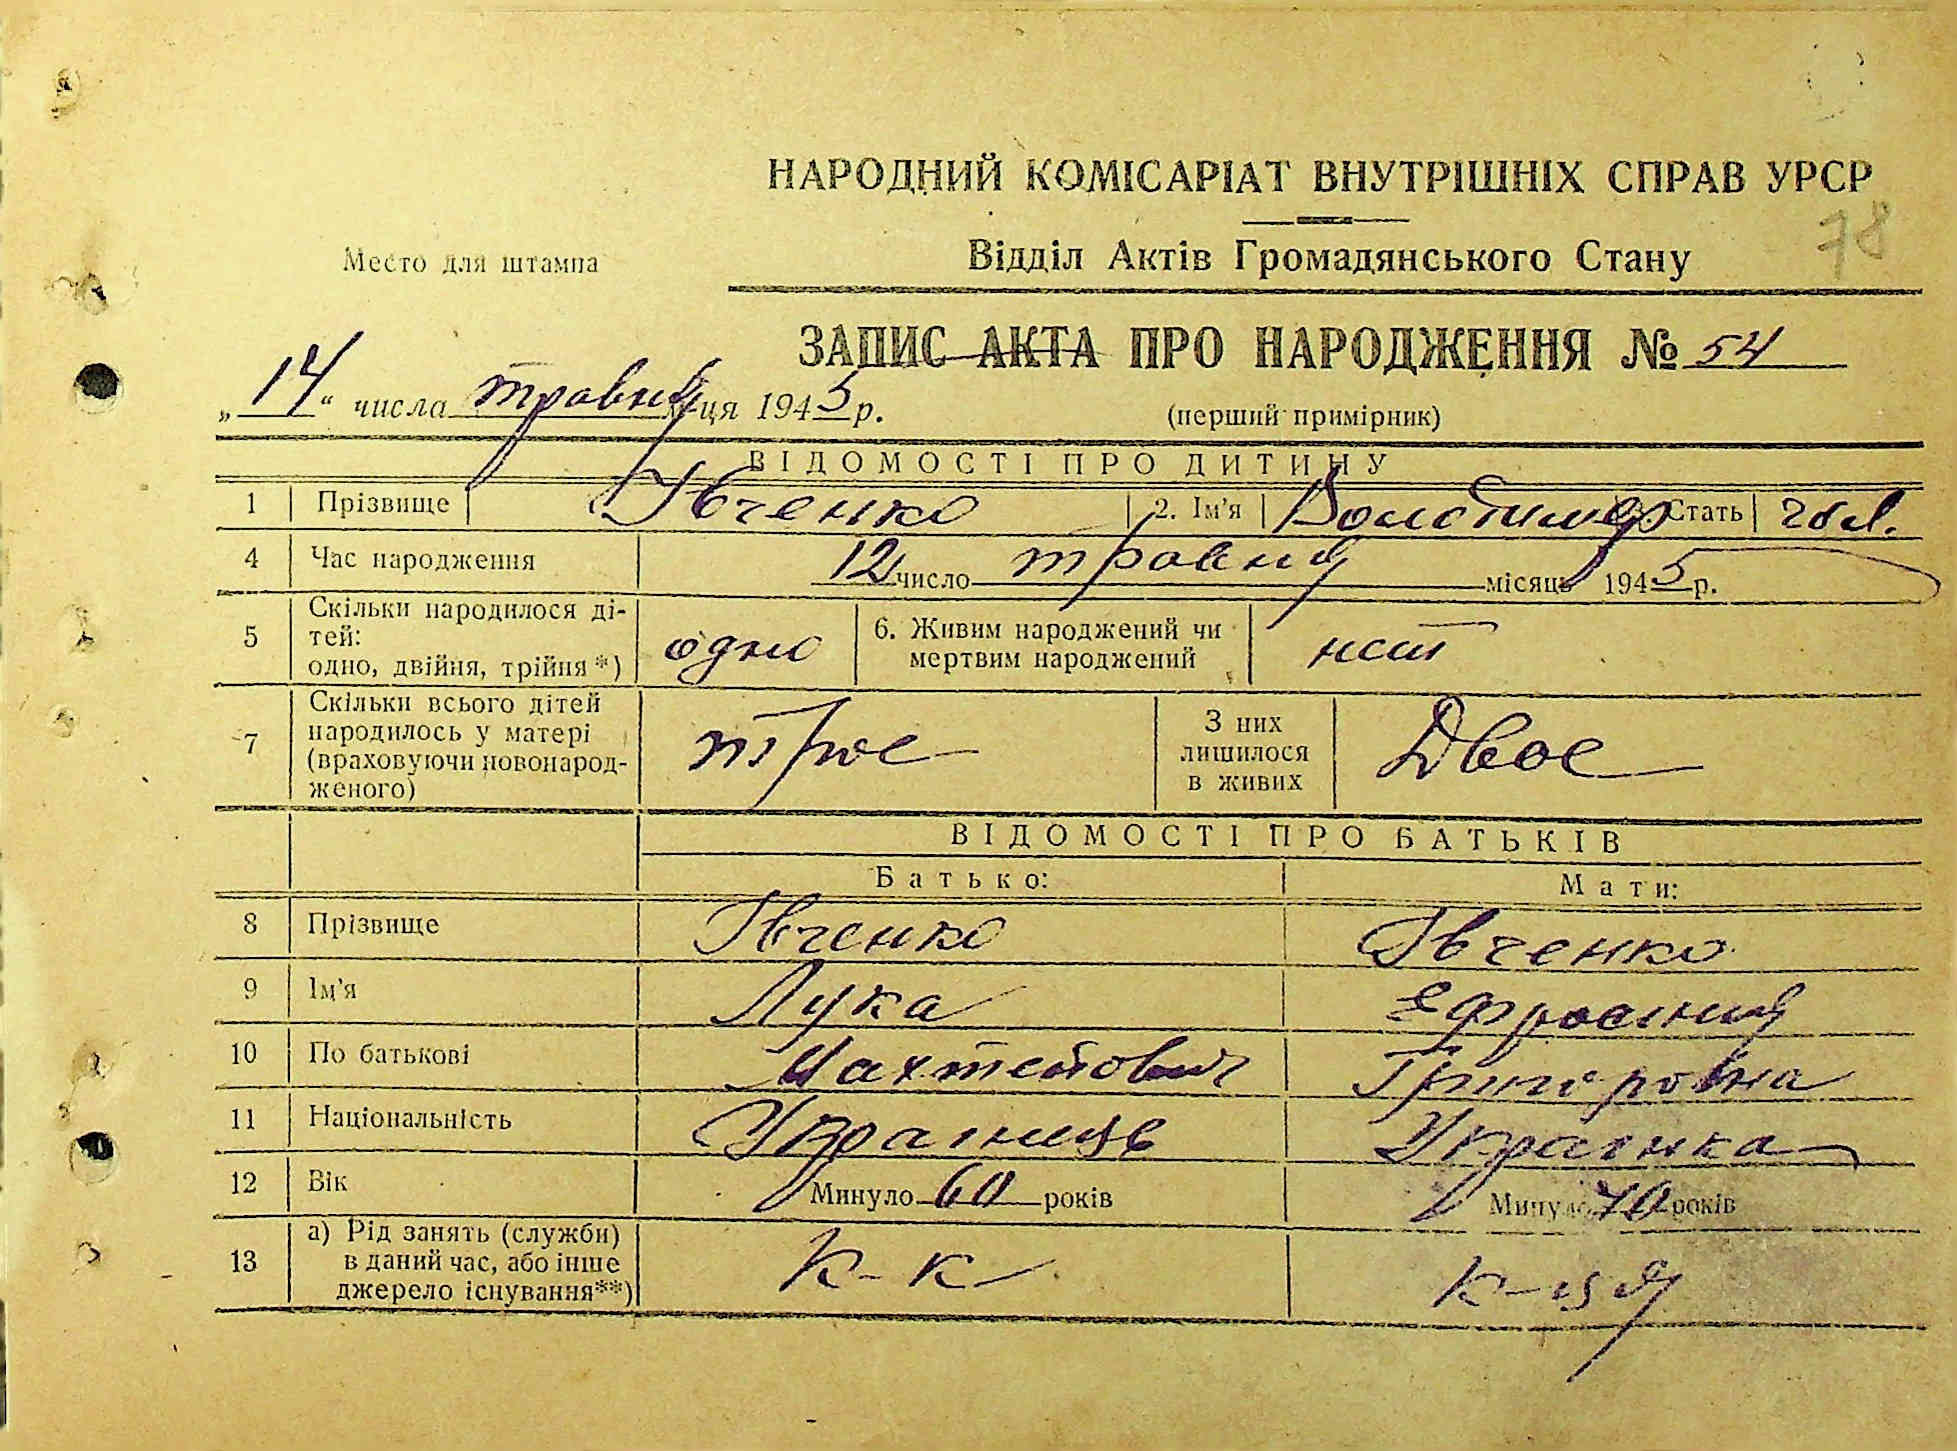 НАРОДНИЙ КОМІСАРІАТ ВНУТРІШНІХ СПРАВ УРСР
78
Место для штампа
Відділ Актів Громадянського Стану
ЗАПИС АКТА ПРО НАРОДЖЕННЯ № 54
„14“ числа травня м-ця 1945 р.
(перший примірник)
ВІДОМОСТІ ПРО ДИТИНУ
1 Прізвище Івченко 2. Ім'я Володимир 3. Стать чол.
4 Час народження 12 число травня місяць 1945 р.
5 Скільки народилося ді-
тей:
одно, двійня, трійня *) одно 6. Живим народжений чи
мертвим народжений
7 Скільки всього дітей
народилось у матері
(враховуючи новонарод-
женого) трое З них
лишилося
в живих Двое
ВІДОМОСТІ ПРО БАТЬКІВ
Батько: Мати:
8 Прізвище Івченко Івченко
9 Ім'я Лука Ефросиния
10 По батькові Григоровна
11 Національність Украінець Украінка
12 Вік Минуло 60 років Минуло 40 років
13 а) Рід занять (служби)
в даний час, або інше
джерело існування**) К-к К-ця